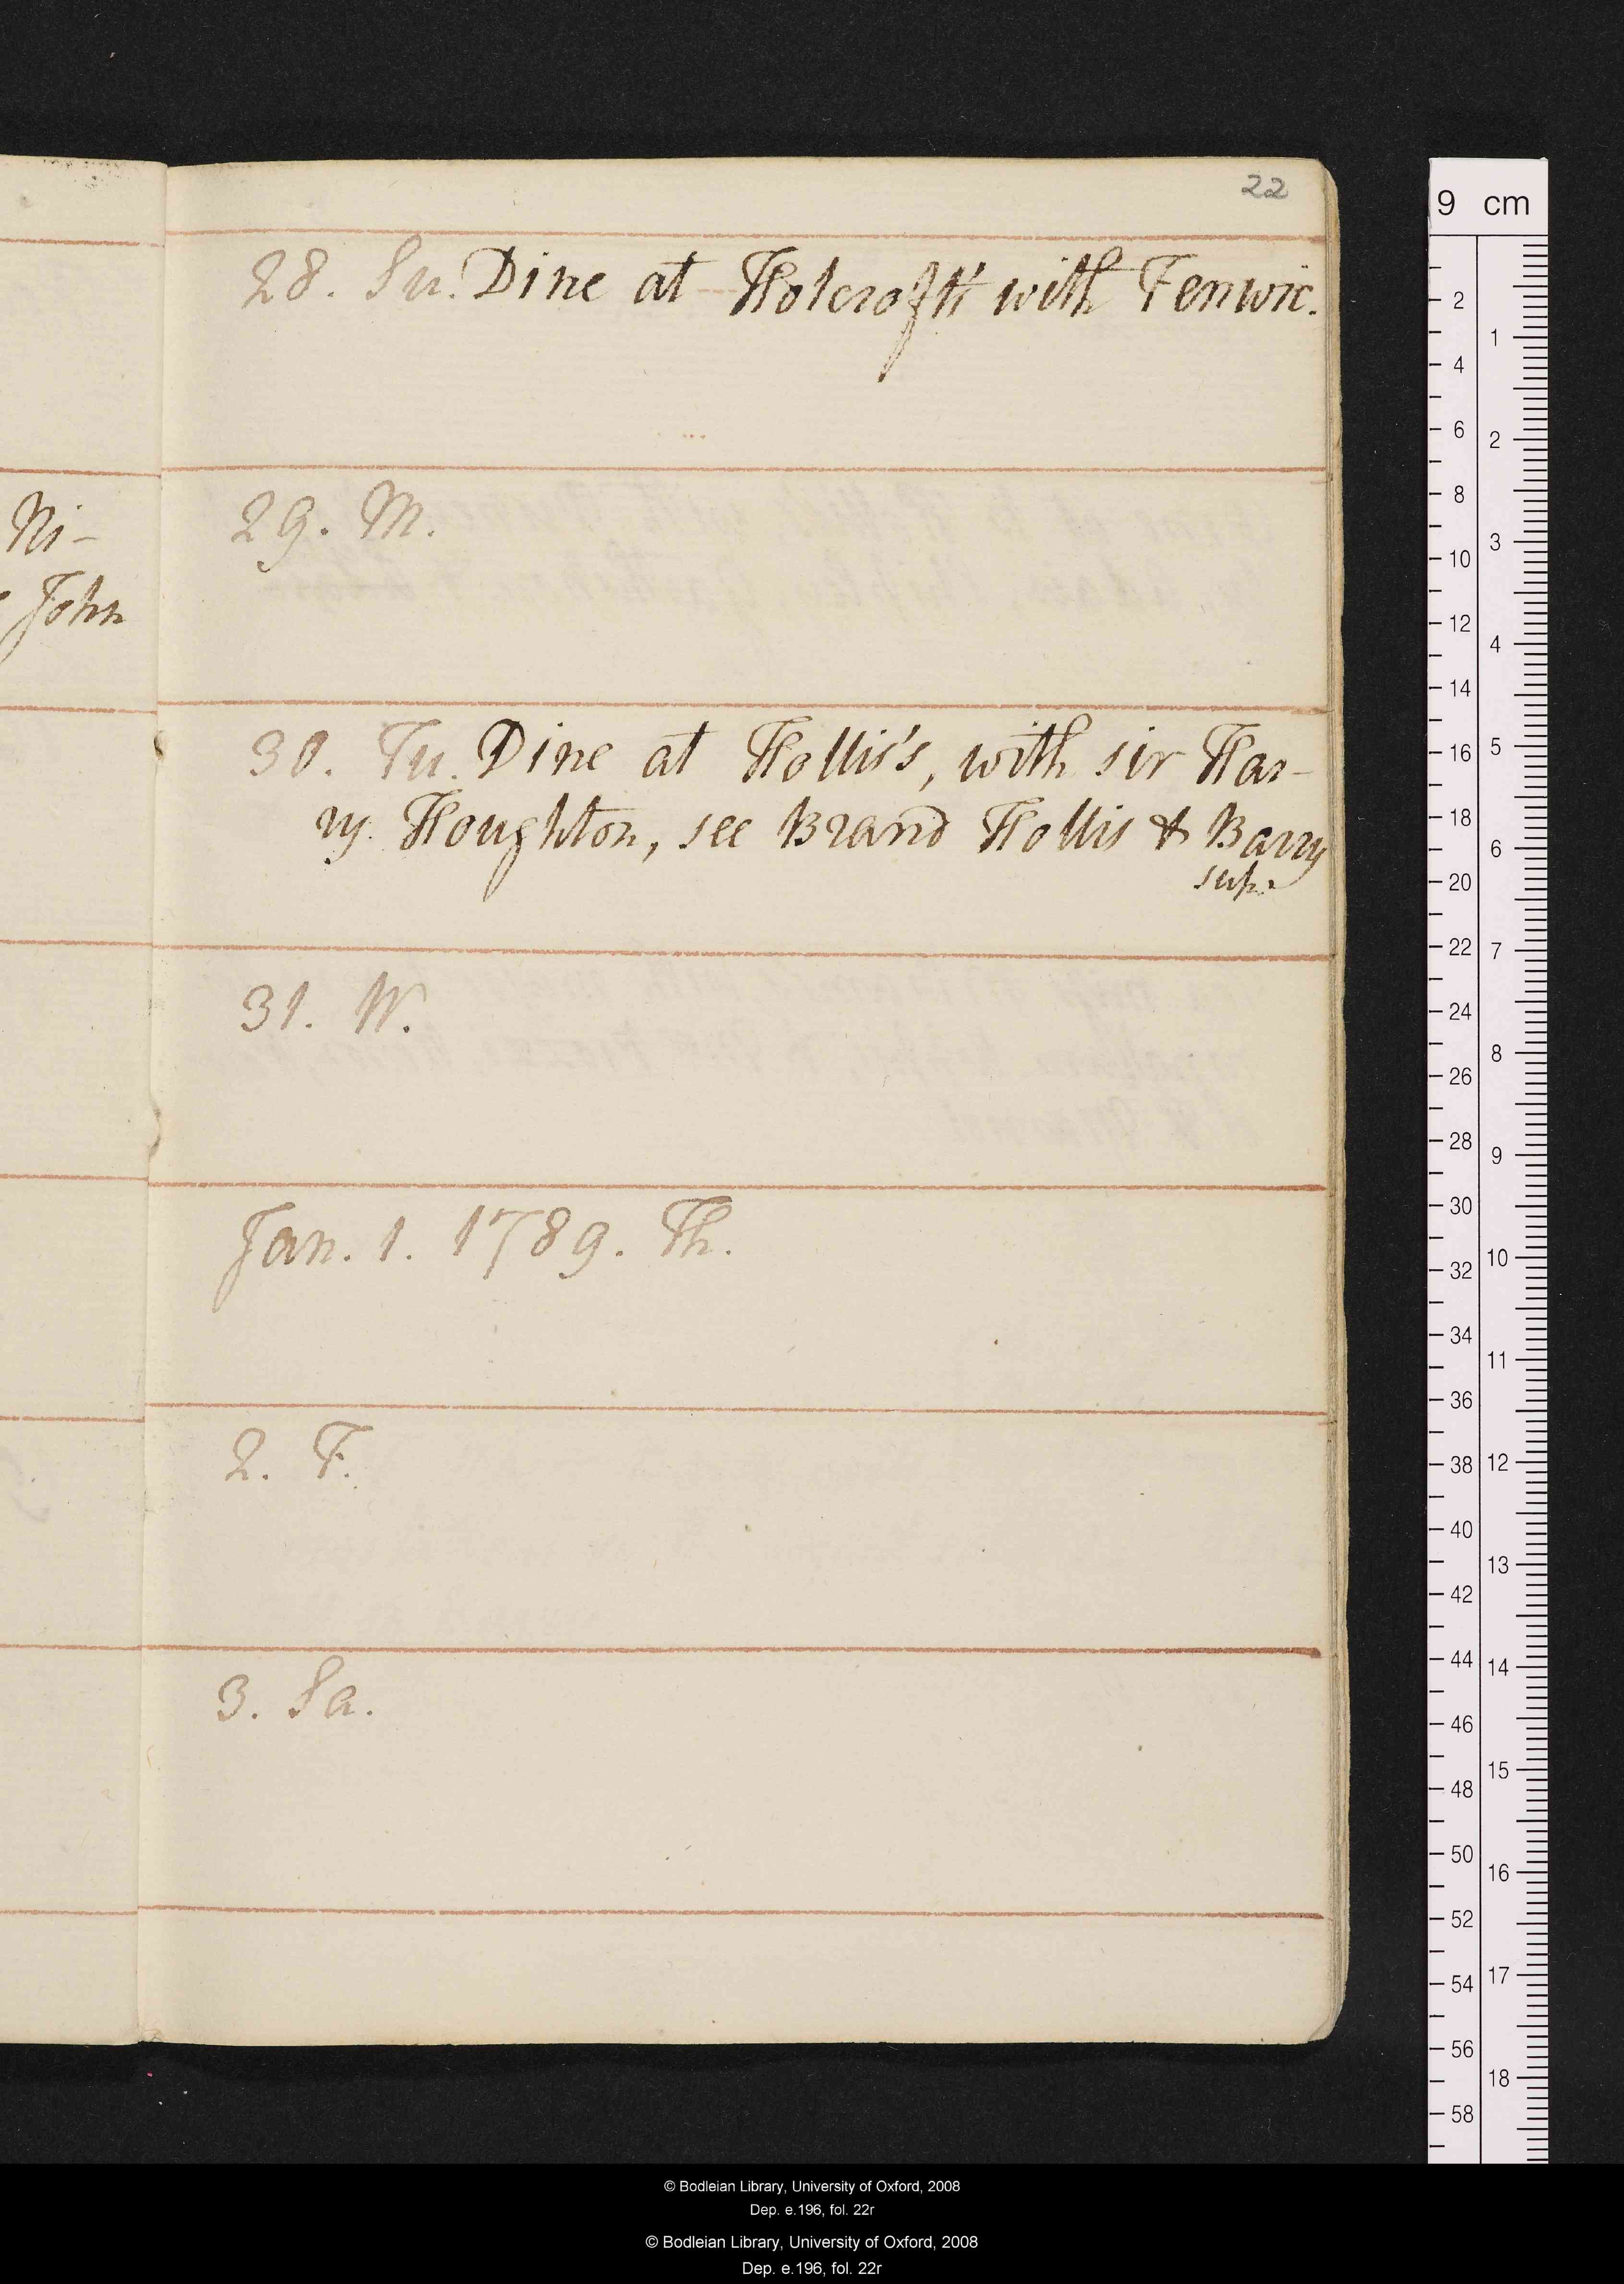 22
28. Su. Dine at Holcroft's with Fenwic.
Ni-
John
29. M.
30. Tu. Dine at Hollis's, with sir Har-
ry Houghton, see Brand Hollis & Barry
sup.
31. W.
Jan. 1. 1789. Th.
2. F.
3. Sa.
9 cm
2
4
6
8
10
12
14
16
18
20
22
24
26
28
30
32
34
36
38
40
42
44
46
48
50
52
54
56
58
1
2
3
4
5
6
7
8
9
10
11
12
13
14
15
16
17
18
© Bodleian Library, University of Oxford, 2008
Dep. e.196, fol. 22r
© Bodleian Library, University of Oxford, 2008
Dep. e.196, fol. 22r